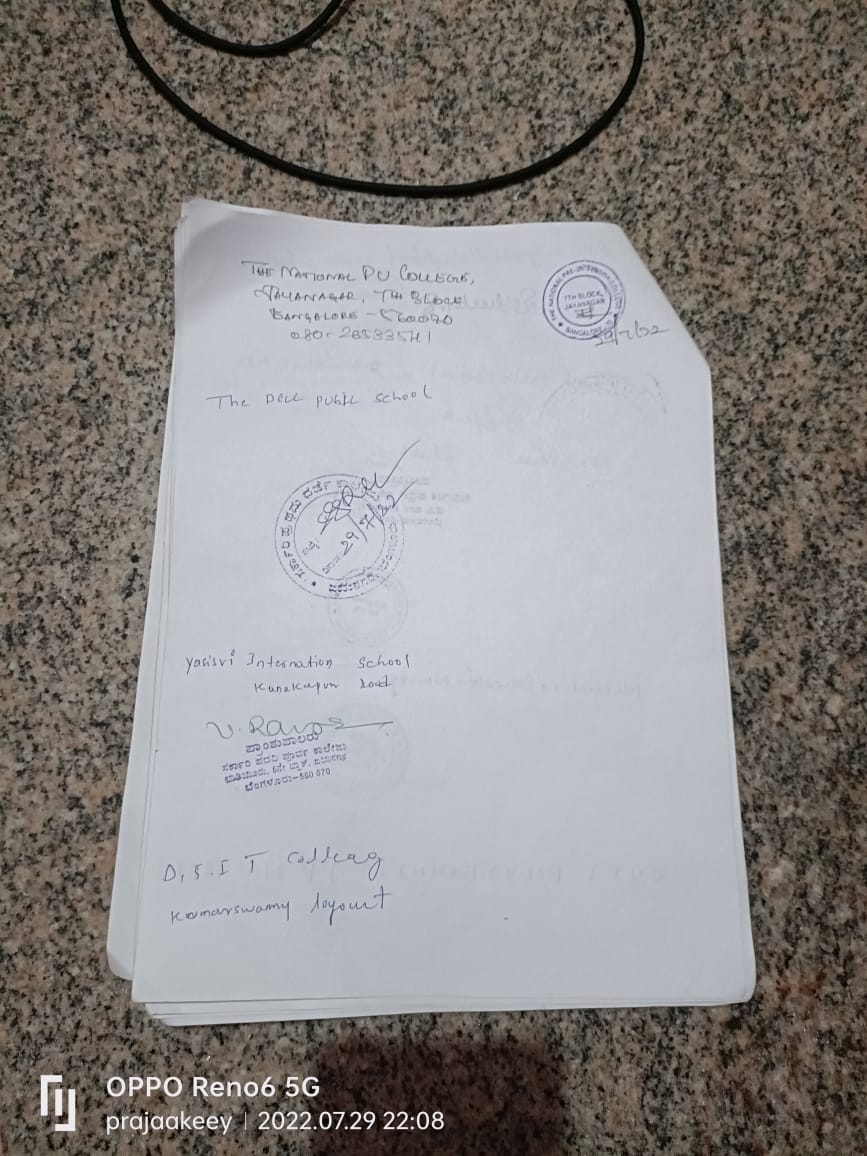 THE NATIONAL PU COLLEGE,
JAYANAGAR, 7TH BLOCK
BANGALORE - 560070
080-26533541
THE NATIONAL PRE-UNIVERSITY COLLEGE
7TH BLOCK,
JAYANAGAR
BANGALORE
29/7/22
The Dell public school
ಸರ್ಕಾರಿ ಪ್ರಥಮ ದರ್ಜೆ
29/7/22
Yasisvi Internation School
Kanakapun Road
V. Ra
ಪ್ರಾಂಶುಪಾಲರು
ಸರ್ಕಾರಿ ಪದವಿ ಪೂರ್ವ ಕಾಲೇಜು
6ನೇ ಬ್ಲಾಕ್, ಜಯನಗರ
ಬೆಂಗಳೂರು-560 070
D.S.I T Colleag
Kamarswamy loyout
OPPO Reno6 5G
prajaakeey | 2022.07.29 22:08